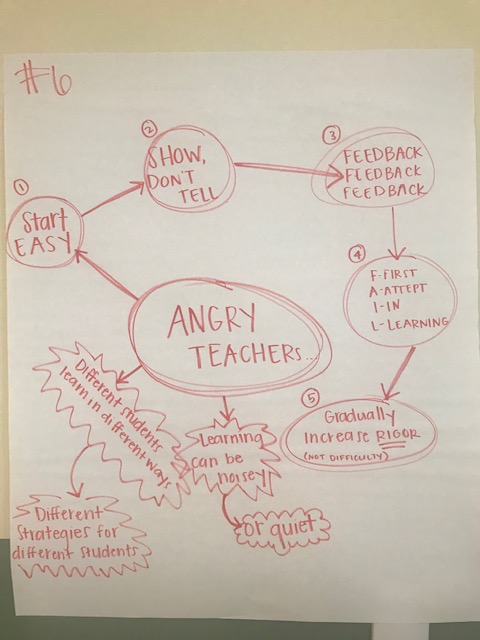 #6
①
Start
EASY
②
SHOW,
DON'T
TELL
③
FEEDBACK
FEEDBACK
FEEDBACK
④
F-FIRST
A-ATTEPT
I-IN
L-LEARNING
⑤
Gradually
increase RIGOR
(NOT DIFFICULTY)
ANGRY
TEACHERS...
Different students
learn in different ways
Different
Strategies for
different students
Learning
can be
noisey
or quiet